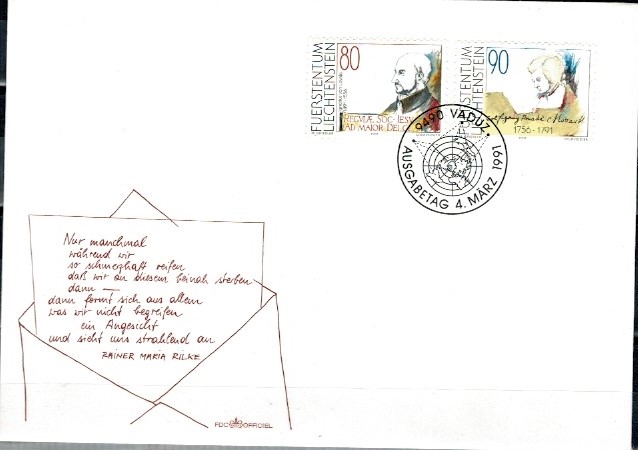 FUERSTENTUM
LIECHTENSTEIN
80
REGVLÆ SOC· IESV
AD MAIOR DEI GLO
FUERSTENTUM
LIECHTENSTEIN
90
1756 - 1791
9490 VADUZ
AUSGABETAG 4. MÄRZ 1991
Nur manchmal
während wir
so schmerzhaft reifen
daß wir an diesem beinah sterben
dann —
dann formt sich aus allem
was wir nicht begreifen
ein Angesicht
und sieht uns strahlend an
RAINER MARIA RILKE
FDC OFFICIEL